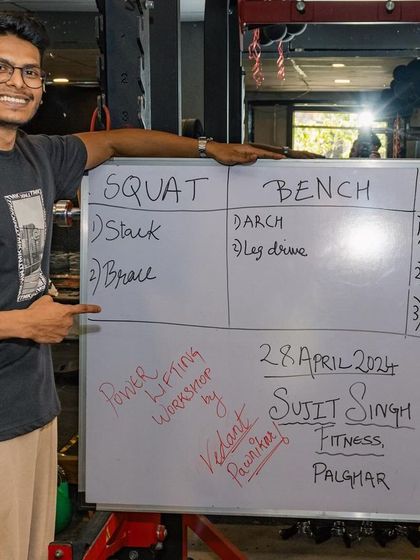 SQUAT
1) Stack
2) Brace
BENCH
1) ARCH
2) Leg drive
POWER LIFTING
WORKSHOP
by
Vedant
Pawnikar
28 APRIL 2024
SUJIT SINGH
FITNESS,
PALGHAR